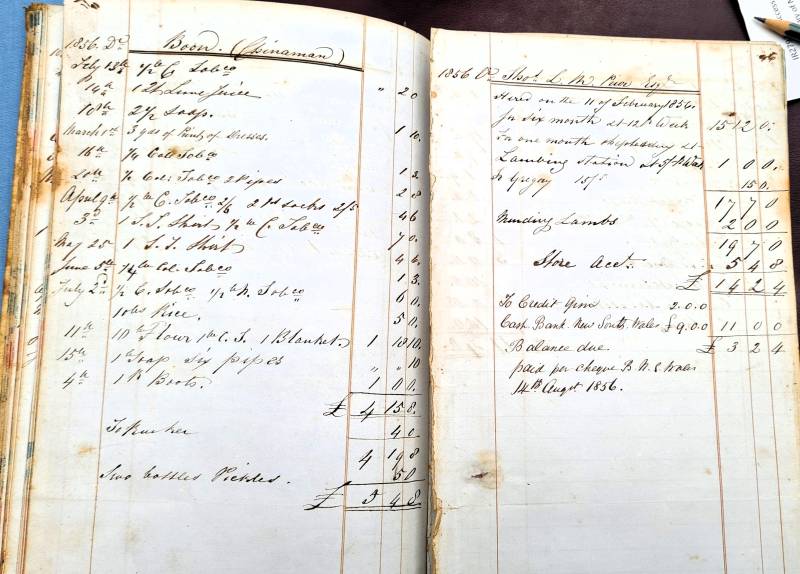 1856. Dr Boon. (Chinaman)
Feby 13th 1/2 lb C Tobco
14th 1 lb Lime Juice " 2 0
10th 2 1/2 Soap.
March 1st 3 yds of Printg of Dresses. 1 10.
16th 1/4 Col Tobco
20th 1/2 Col: Tobco 2 Pipes 1 3
April 9th 1/2 lb C. Tobco 2/6 2 Pd Socks 2/5 2 8
3d 1 S. S. Shirt 1/2 lb C. Tobco 4 6
May 25 1 S. S. Shirt 7 0.
June 5th 1/4 lb Col. Tobco 4 6.
July 2d 1/2 C. Tobco 1/2 lb N. Tobco 1 3.
10 lbs Rice. 6 0.
5 0.
11th 10 lb Flour 1 lb C. S. 1 Blanket. 1 18 10.
15th 1 lb Soap Six pipes " " 10
4th 1 Pr Boots. 1 0 0.
£ 4 15 8.
4 0
4 19 8
Two bottles Pickles. 5 0
£ 5 4 8.
1856 Cr Thos. L. M. Prior Esqr
Hired on the 11 of February 1856.
for six month at 12/ pr Week 15 12 0.
To one month shepherding at
Lambing Station at 5/ pr Week 1 0 0.
To Gregory 15/s 15 0.
17 7 0
Minding Lambs 2 0 0
19 7 0
Store Acct. 5 4 8
£ 14 2 4
To Credit Given 2.0.0
Cash Bank New South Wales £9.0.0 11 0 0
Balance due £ 3 2 4
paid per cheque B N. S Wales
14th Augst 1856.